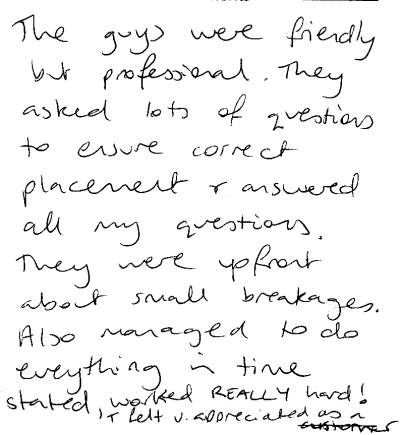 The guys were friendly
but professional. They
asked lots of questions
to ensure correct
placement + answered
all my questions.
They were upfront
about small breakages.
Also managed to do
everything in time
stated, worked REALLY hard!
+ felt v. appreciated as a
customer